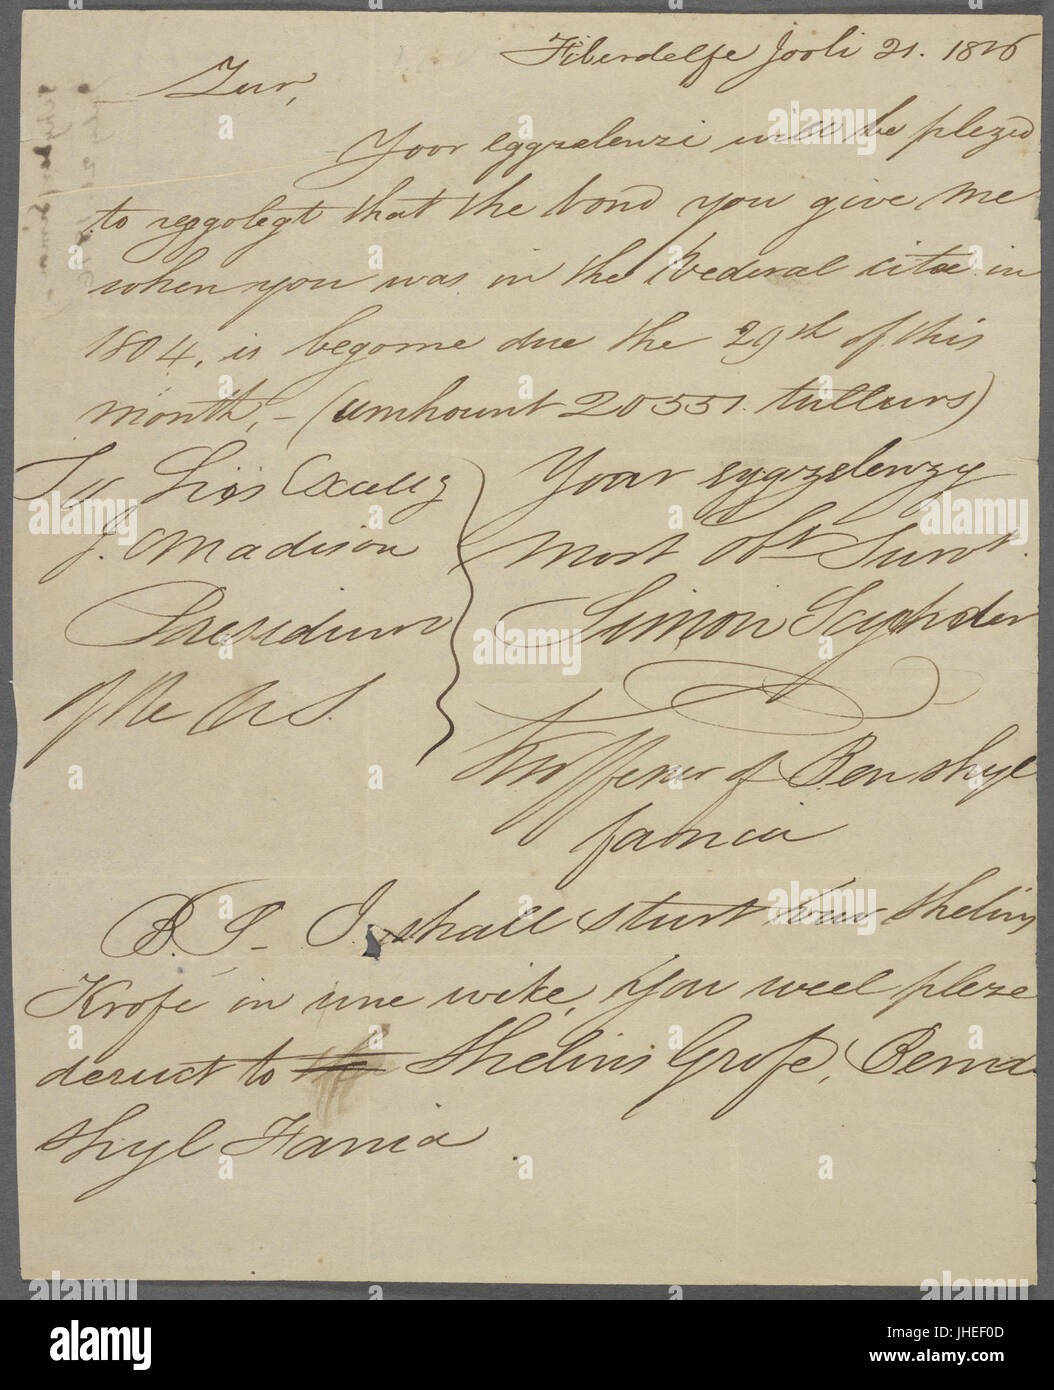 Fiberdelfe Jooli 21. 1816
Zur,
Yoor eggzelenzi will be plezd
to reggolegt that the bond you give me
when you was in the Vederal citae in
1804, is begome due the 29th of this
month, - (umhount 20551. tullurs)
To His Excelleg
J. Madison
Presidiunt
of the U S.
Yoor eggzelenzy
most Obt Survt.
Simon Scyhder
Kuffener of Benshyl
fannia
B. S - I shall sturt vour Shelins
Krofe in une wike, you weel pleze
deruct to Shelins Grofe, Benn
shyl Fania
alamy
Image ID: JHEF0D
www.alamy.com